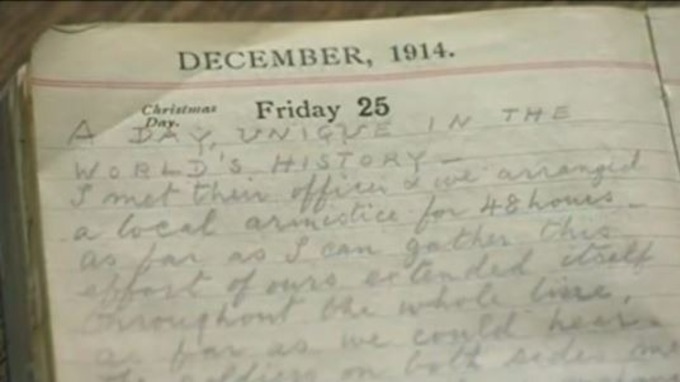 DECEMBER, 1914.
Christmas
Day.
Friday 25
A DAY, UNIQUE IN THE
WORLD'S HISTORY —
I met their officer & we arranged
a local armistice for 48 hours —
as far as I can gather this
effort of ours extended itself
throughout the whole line,
as far as we could hear.
the soldiers on both sides met